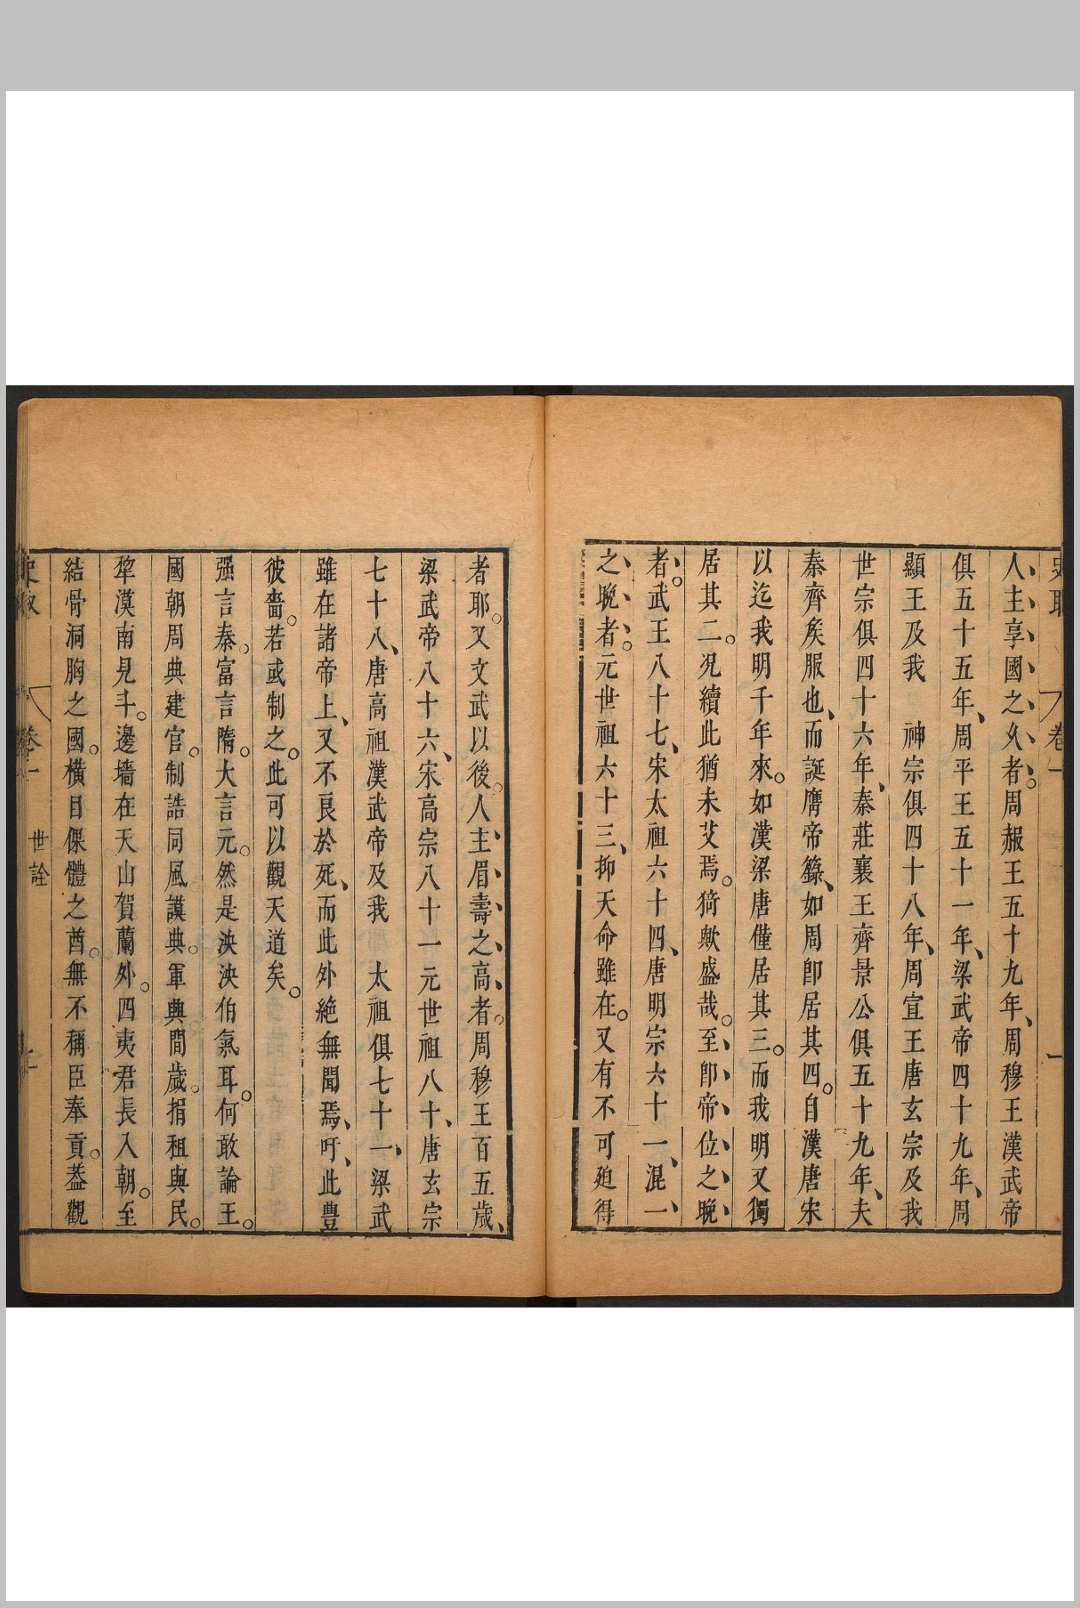 人主享國之乆者周赧王五十九年周穆王漢武帝
俱五十五年周平王五十一年梁武帝四十九年周
顯王及我　神宗俱四十八年周宣王唐玄宗及我
世宗俱四十六年秦莊襄王齊景公俱五十九年夫
秦齊矦服也而誕膺帝籙如周卽居其四自漢唐宋
以迄我明千年來如漢梁唐僅居其三而我明又獨
居其二况續此猶未艾焉猗歟盛哉至卽帝位之晚
者武王八十七宋太祖六十四唐明宗六十一混一
之晚者元世祖六十三抑天命雖在又有不可廹得
者耶又文武以後人主眉壽之高者周穆王百五歲
梁武帝八十六宋高宗八十一元世祖八十唐玄宗
七十八唐高祖漢武帝及我　太祖俱七十一梁武
雖在諸帝上又不良於死而此外絶無聞焉吁此豊
彼嗇若或制之此可以觀天道矣
强言秦富言隋大言元然是泱泱伯氣耳何敢論王
國朝周典建官制誥同風謨典軍興間歲捐租與民
犂漠南見斗邊墙在天山賀蘭外四夷君長入朝至
結骨洞胸之國橫目倮體之酋無不稱臣奉貢葢觀
卷一
世詮